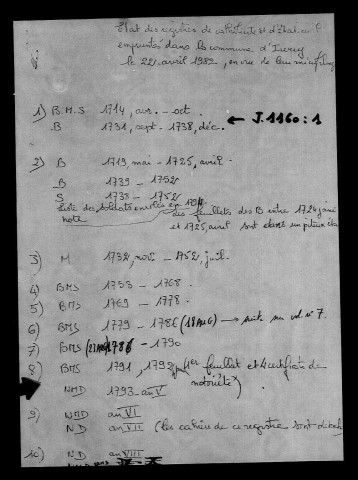 Etat des registres de catholicité et d'état civil
empruntés dans la commune d'
le 22 avril 1982, en vue de leur microfilmage
1) B.M.S 1714, avr. - oct.
B 1731, sept - 1738, déc. ← J.1160:1
2) B 1719, mai - 1725, avril -
B 1739 - 1752
S 1738 - 1752
Liste de soldats enrôlés en
note des feuillets des B entre 1724, janv
et 1725, avril sont dans un piteux état
3) M 1732, nov. - 1752, juil.
4) BMS 1753 - 1768.
5) BMS 1769 - 1778.
6) BMS 1779 - 1786 (18 ) → suite au vol. n° 7.
7) BMS 1786 - 1790
8) BMS 1791, 1792, 1er feuillet et 4 certificats de
notoriété
NMD 1793 - an V
9) NMD an VI
ND an VII (les cahiers de ce registre sont
10) ND an VIII